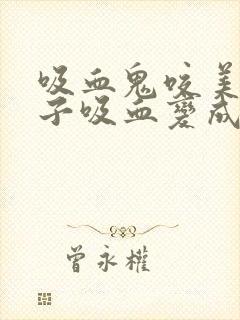 吸血鬼咬美
子吸血變成
曾永權